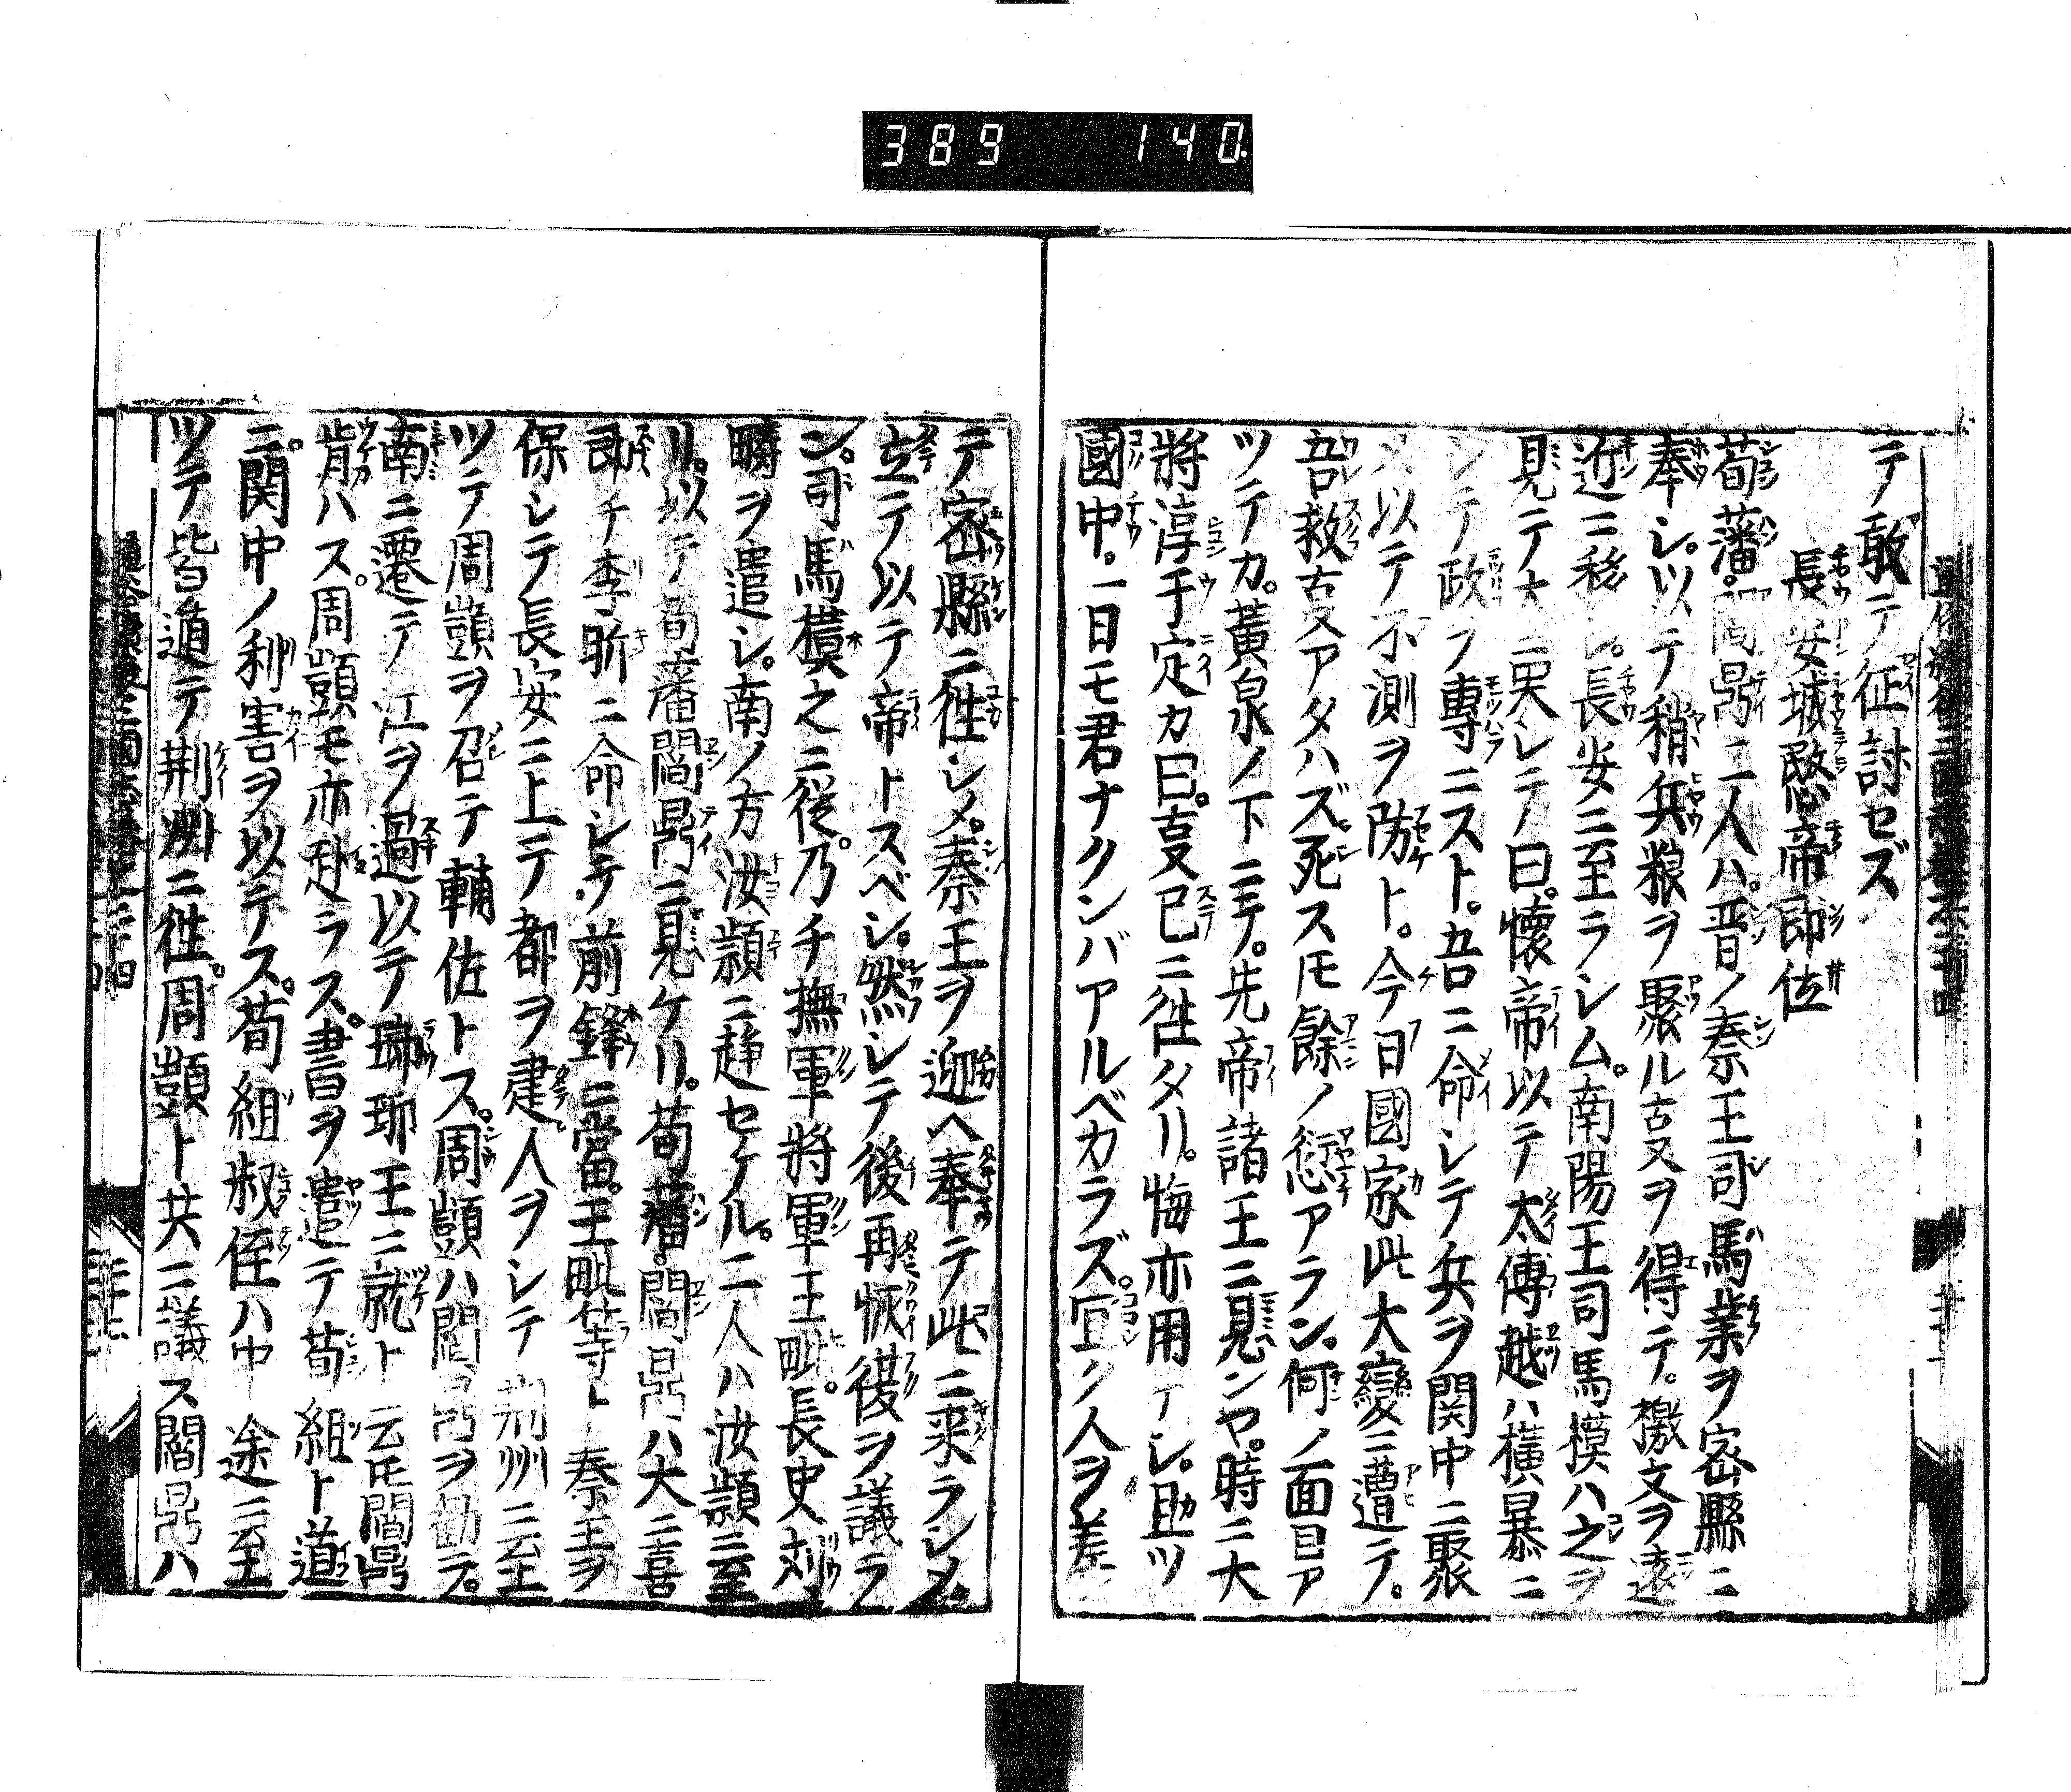 389 140
テ敢テ征討セズ
長安城愍帝即位
荀藩閻鼎二人ハ。晋ノ秦王司馬業ヲ密縣ニ
奉シ。以テ稍兵粮ヲ聚ル叓ヲ得テ。檄文ヲ遠
近ニ移シ。長安ニ至ラシム。南陽王司馬模ハ之ヲ
見テ大ニ哭シテ曰。懷帝以テ太傅越ハ橫暴ニ
シテ政ヲ專ニスト。吾ニ命シテ兵ヲ関中ニ聚
メ以テ不測ヲ防ケト。今日國家此大變ニ遭テ。
吾救叓アタハズ死スモ餘ノ愆アラン。何ノ面目ア
ツテカ。黃泉ノ下ニ予。先帝諸王ニ見ンヤ。時ニ大
將淳于定カ曰。叓已ニ徃タリ。悔亦用ナシ。且ツ
國中。一日モ君ナクンバアルベカラズ。宜ク人ヲ差
テ密縣ニ徃シメ。秦王ヲ迎ヘ奉テ此ニ来ラシメ。
立テ以テ帝トスベシ。然シテ後再恢復ヲ議ラ
ン。司馬模之ニ從。乃チ撫軍將軍王毗。長史刘
疇ヲ遣シ。南ノ方汝潁ニ趣セケル。二人ハ汝潁ニ至
リ。以テ荀藩閻鼎ニ見ケリ。荀藩。閻鼎ハ大ニ喜
即チ李昕ニ命シテ前鋒ニ當。王毗等ト秦王ヲ
保シテ長安ニ上テ都ヲ建。人ヲシテ荆州ニ至
ツテ周顗ヲ召テ輔佐トス。周顗ハ閻鼎ヲ勧テ。
南ニ遷テ江ヲ過以テ瑯琊王ニ就ト云𪜈閻鼎
肯ハス。周顗モ亦赴ラス。書ヲ遣テ荀組ト道
ニ。関中ノ利害ヲ以テス。荀組叔侄ハ中途ニ至
ツテ皆遁テ荆州ニ徃。周顗ト共ニ議ス閻鼎ハ